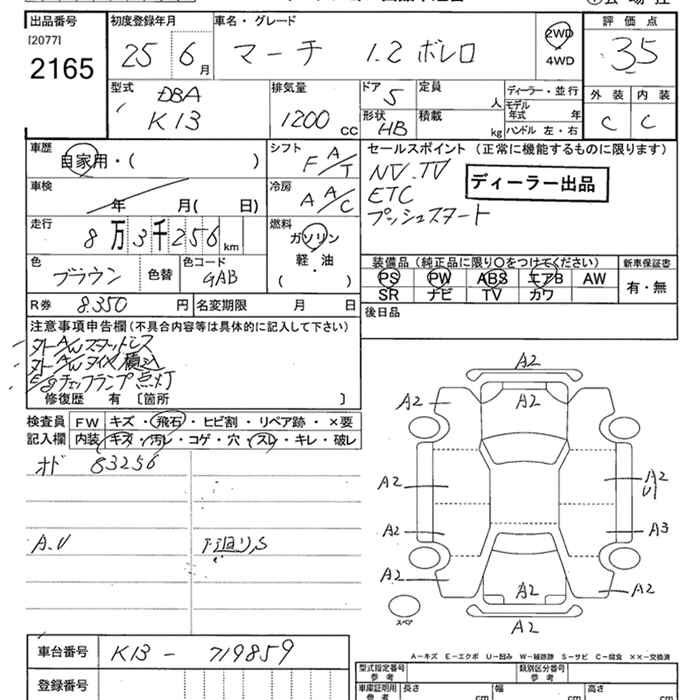 出品番号 初度登録年月 車名・グレード 評価点
[2077]
2165 25 6月 マーチ 1.2 ボレロ 2WD ・ 4WD 3.5
外装 内装
C C
型式 排気量 ドア 定員 ディーラー・並行
DBA K13 1200 CC 5 人 モデル年式 年
形状 積載
HB kg ハンドル 左・右
車歴 シフト セールスポイント (正常に機能するものに限ります)
自家用・( ) F A/T NV.TV
車検 冷房 ETC ディーラー出品
年 月( 日) A A/C プッシュスタート
走行 燃料
8万3千256km ガソリン
軽・油
( )
色 色コード
ブラウン 色替 GAB
装備品 (純正品に限り○をつけてください) 新車保証書
PS PW ABS エアB AW 有・無
SR ナビ TV カワ
R券 8.350 円 名変期限 月 日
後日品
注意事項申告欄 (不具合内容等は具体的に記入して下さい)
外A/Wスタッドレス
外A/Wタイヤ積込
E/gチェックランプ点灯
修復歴 有 〔箇所 〕
検査員 FW キズ・飛石・ヒビ割・リペア跡・×要
記入欄 内装 キズ・汚レ・コゲ・穴・スレ・キレ・破レ
オド 83256
A.U 下廻りS
A2
A2 A2
A2 A2
U1
A2 A3
A2 A2 A2
A2
スペア
A-キズ E-エクボ U-凹み W-補修跡 S-サビ C-腐食 ××-交換済
車台番号 K13 - 719859
登録番号
型式指定番号 参考 類別区分番号 参考
車庫証明用 参考 長さ cm 幅 cm 高さ cm